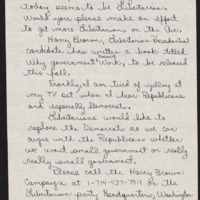 Today seems to be Libertarian.
Would you please make an effort
to get more Libertarians on the Air.
Harry Browne, Libertarian Presidential
Candidate has written a book titled
Why government Doesn't Work, to be released
this fall.
Frankly, I am tired of yelling at
my TV set when I hear Republicans
and especially Democrats.
Libertarians would like to
replace the Democrats so we can
argue with the Republicans whether
we want small government or really
really small government.
Please call the Harry Browne
Campaign at 1-714-437-7911 or the
Libertarian party Headquarters, Washington